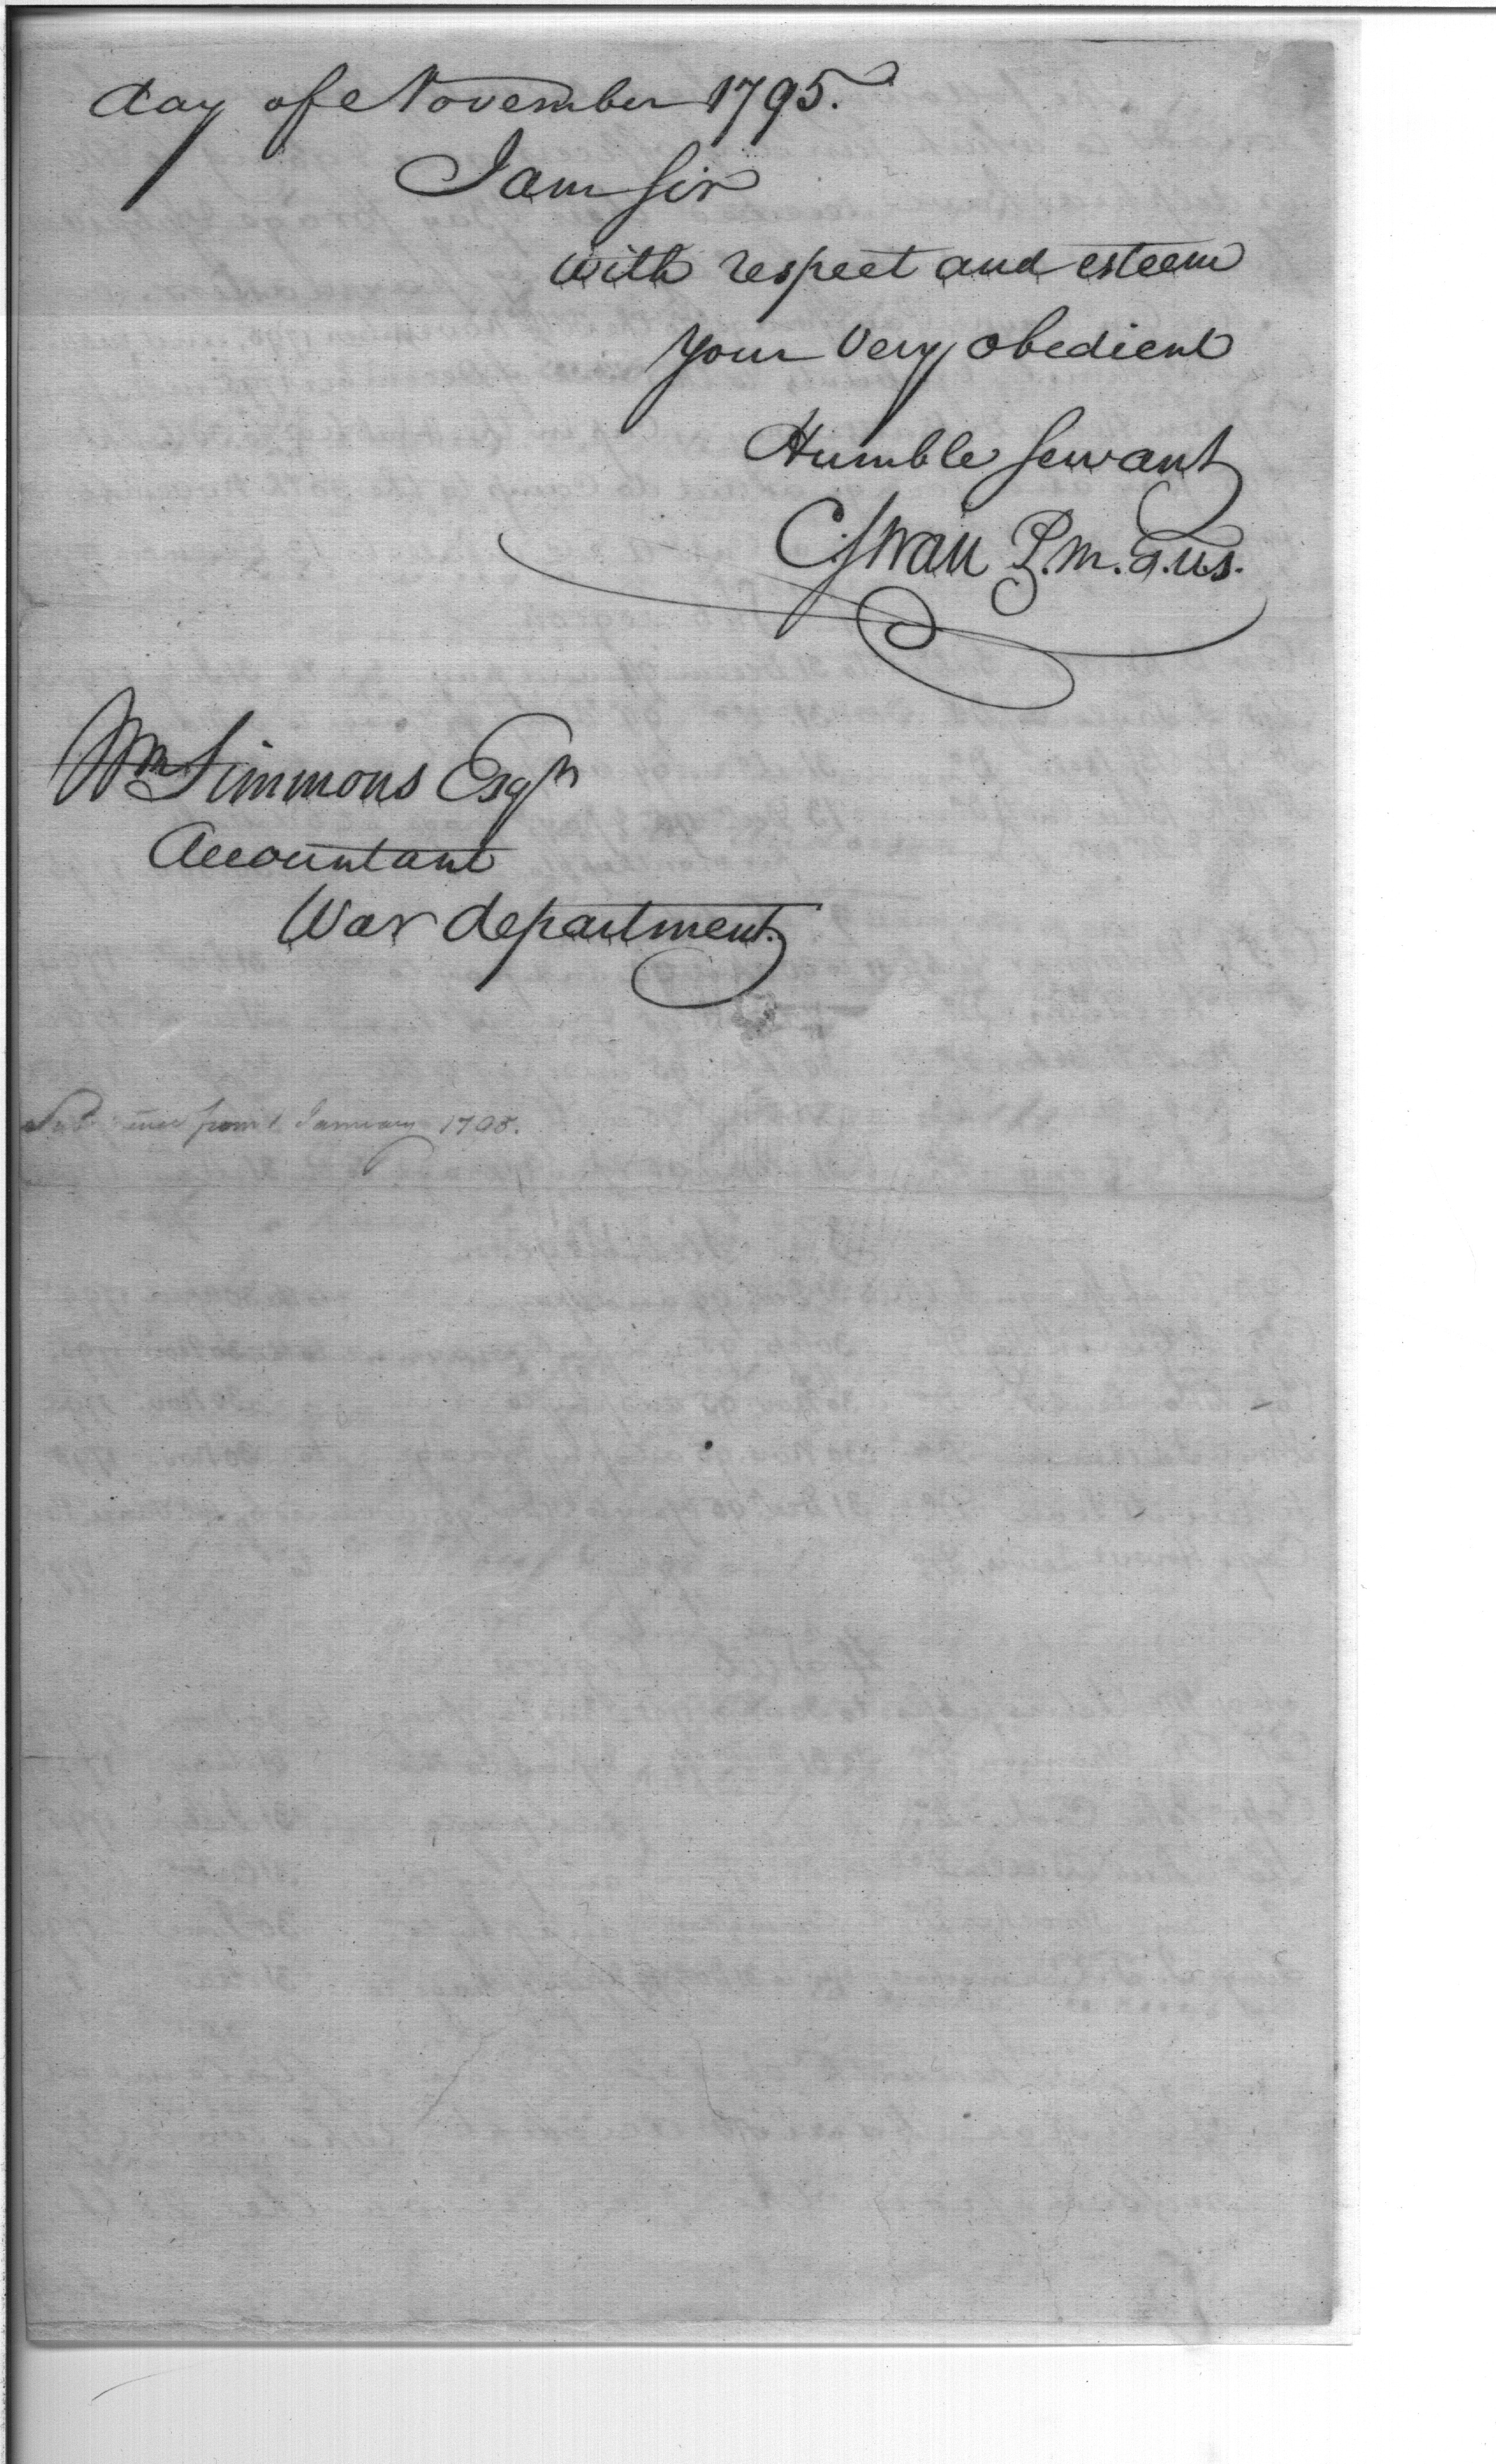 day of November 1795.
I am Sir
with respect and esteem
Your Very obedient
Humble Servant
C. Swan P.M.a.us.
Wm Simmons Esqr
Accountant
War department.
from 1 January 1795.